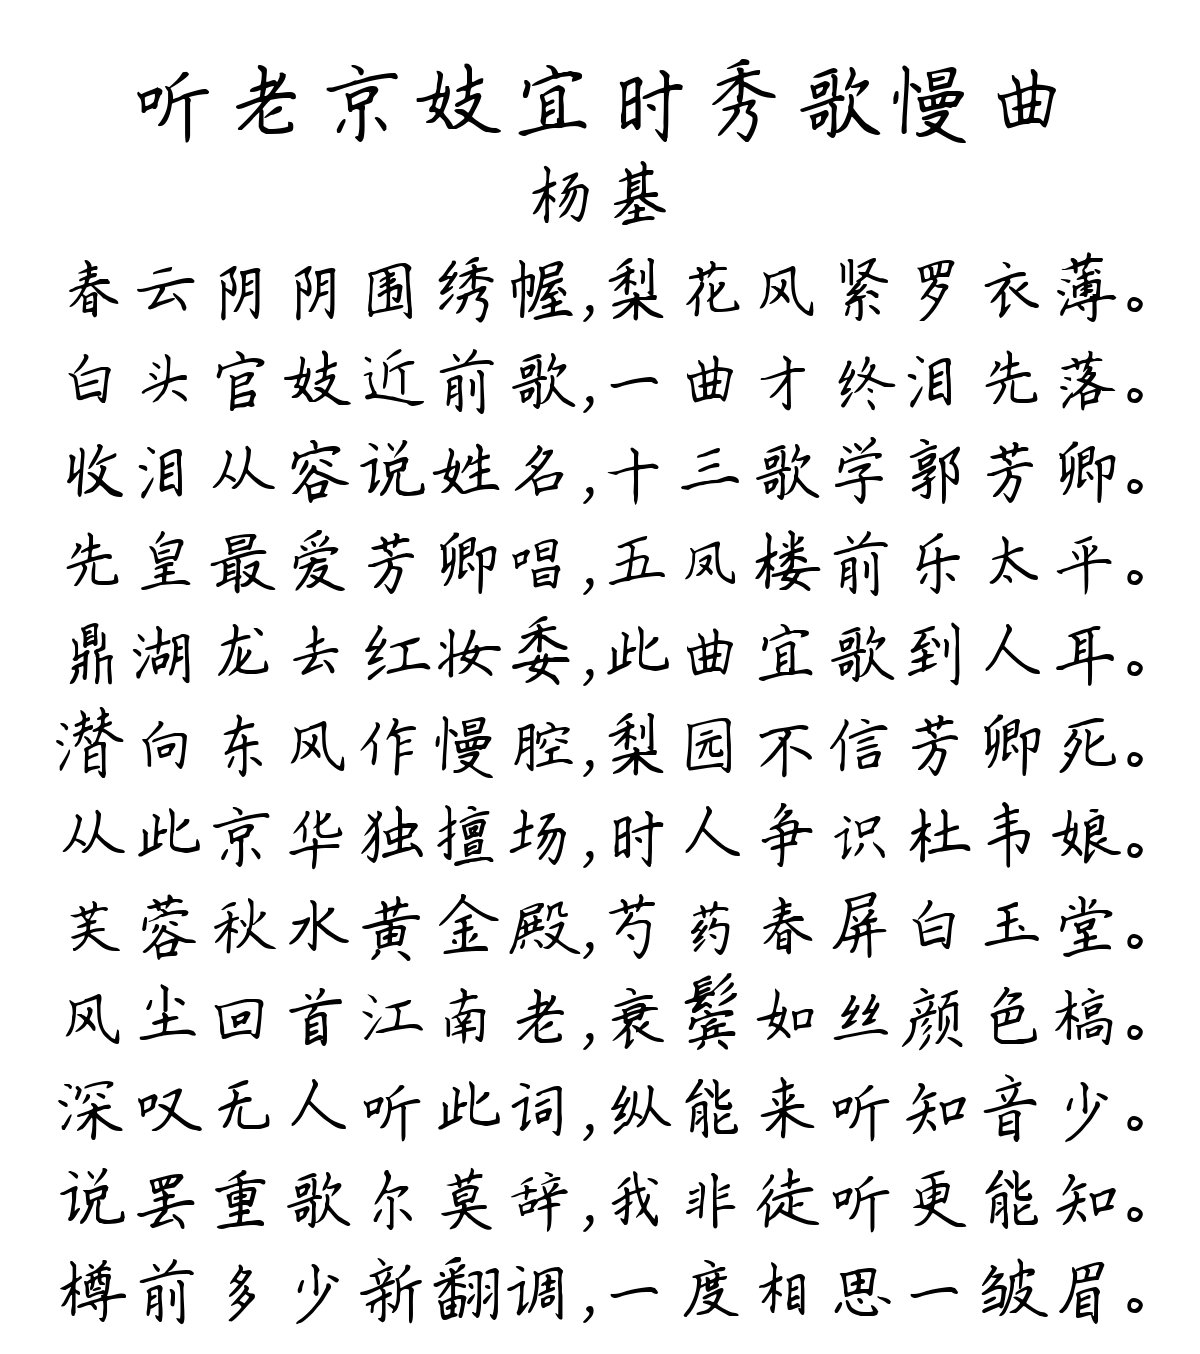 听老京妓宜时秀歌慢曲
杨基
春云阴阴围绣幄,梨花风紧罗衣薄。
白头官妓近前歌,一曲才终泪先落。
收泪从容说姓名,十三歌学郭芳卿。
先皇最爱芳卿唱,五凤楼前乐太平。
鼎湖龙去红妆委,此曲宜歌到人耳。
潜向东风作慢腔,梨园不信芳卿死。
从此京华独擅场,时人争识杜韦娘。
芙蓉秋水黄金殿,芍药春屏白玉堂。
风尘回首江南老,衰鬓如丝颜色槁。
深叹无人听此词,纵能来听知音少。
说罢重歌尔莫辞,我非徒听更能知。
樽前多少新翻调,一度相思一皱眉。